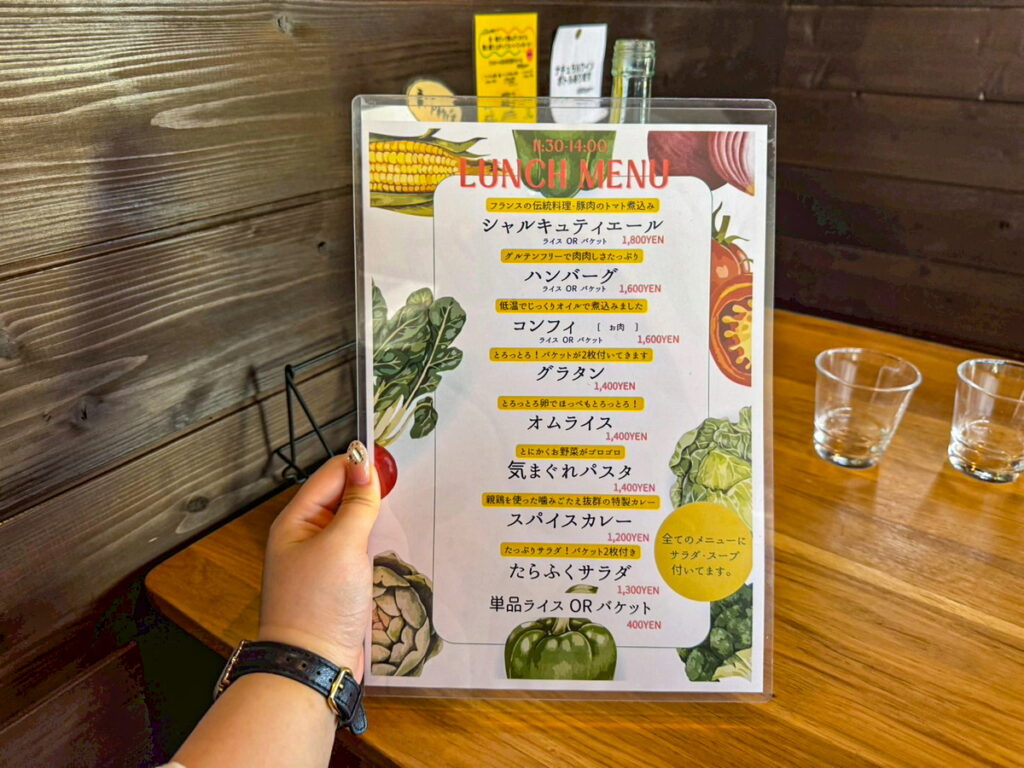 ナチュラルワイン
11:30-14:00
LUNCH MENU
フランスの伝統料理・豚肉のトマト煮込み
シャルキュティエール
ライス OR バケット 1,800YEN
グルテンフリーで肉肉しさたっぷり
ハンバーグ
ライス OR バケット 1,600YEN
低温でじっくりオイルで煮込みました
コンフィ [ お肉 ]
ライス OR バケット 1,600YEN
とろっとろ！バケットが2枚付いてきます
グラタン
1,400YEN
とろっとろ卵でほっぺもとろっとろ！
オムライス
1,400YEN
とにかくお野菜がゴロゴロ
気まぐれパスタ
1,400YEN
親鶏を使った噛みごたえ抜群の特製カレー
スパイスカレー
1,200YEN
たっぷりサラダ！バケット2枚付き
たらふくサラダ
1,300YEN
単品ライス OR バケット
400YEN
全てのメニューに
サラダ・スープ
付いてます。